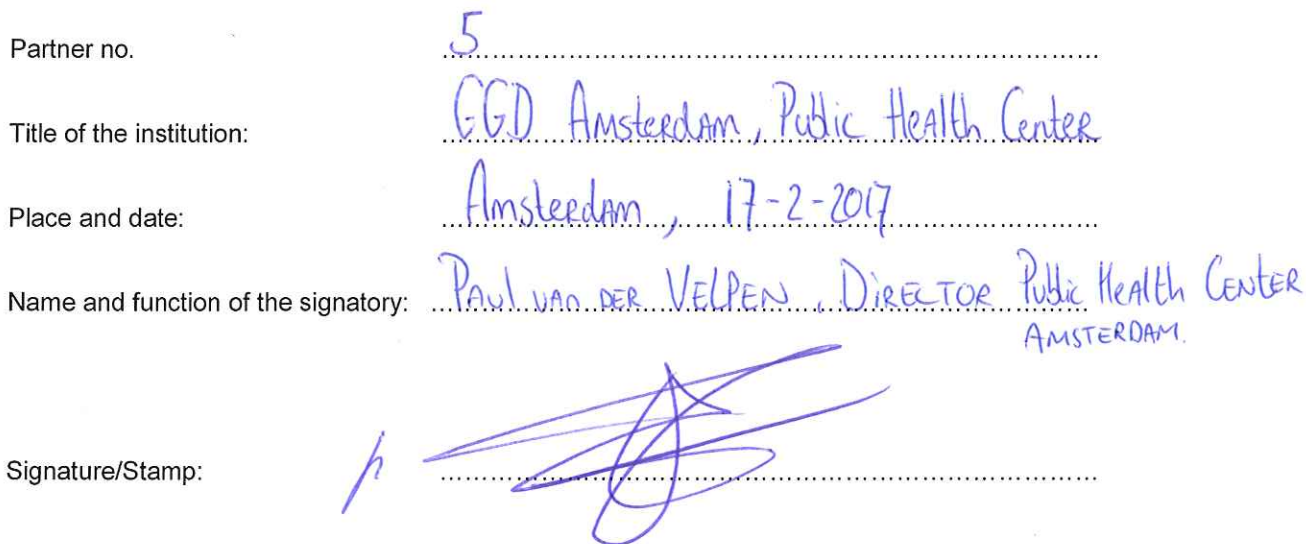 Partner no. 5
Title of the institution: GGD Amsterdam, Public Health Center
Place and date: Amsterdam, 17-2-2017
Name and function of the signatory: Paul van der Velpen, Director Public Health Center
Amsterdam.
Signature/Stamp: